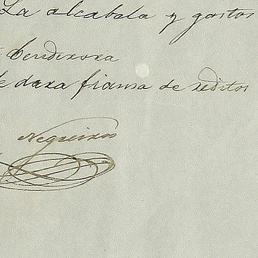 La alcabala y gastos
benderora
dara fiansa de reditos
Negreiros